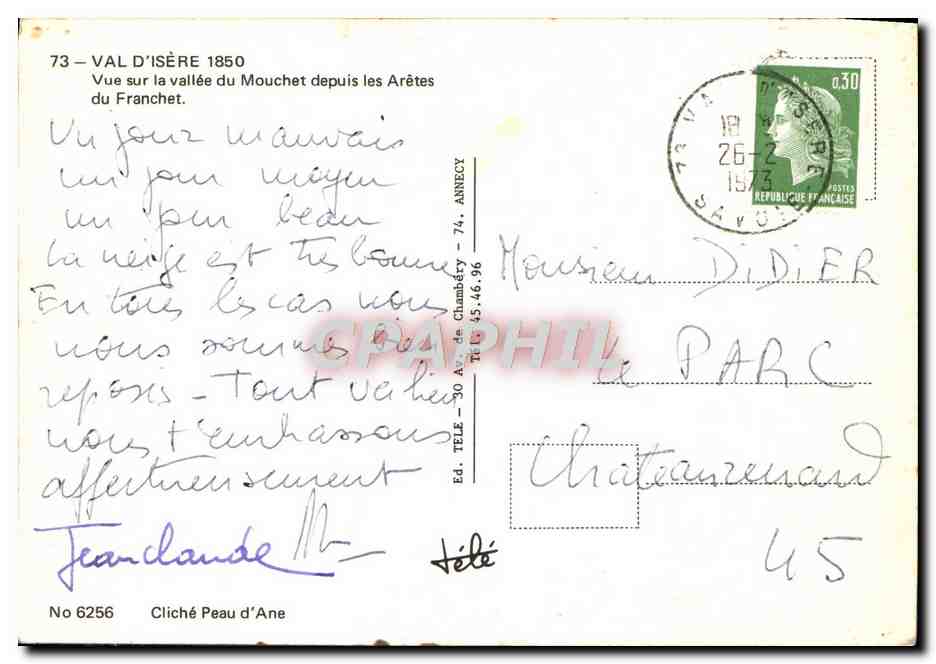 73 — VAL D'ISÈRE 1850
Vue sur la vallée du Mouchet depuis les Arêtes
du Franchet.
Un jour mauvais
un jour moyen
un jour beau
La neige est très bonne
En tous les cas nous
nous sommes bien
reposés - Tout va bien
nous t'embrassons
affectueusement
Jean claude
No 6256 Cliché Peau d'Ane
Ed. TELE — 30 Av. de Chambéry — 74. ANNECY
Tél. 45.46.96
télé
CPAPHIL
73 VAL D'ISERE
18 H
26-2
1973
SAVOIE
0,30
POSTES
REPUBLIQUE FRANÇAISE
Monsieur DiDiER
Le PARC
Chateaurenard
45